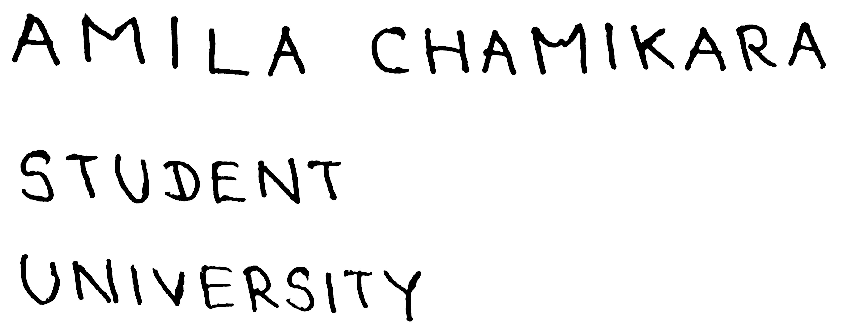 AMILA CHAMIKARA
STUDENT
UNIVERSITY